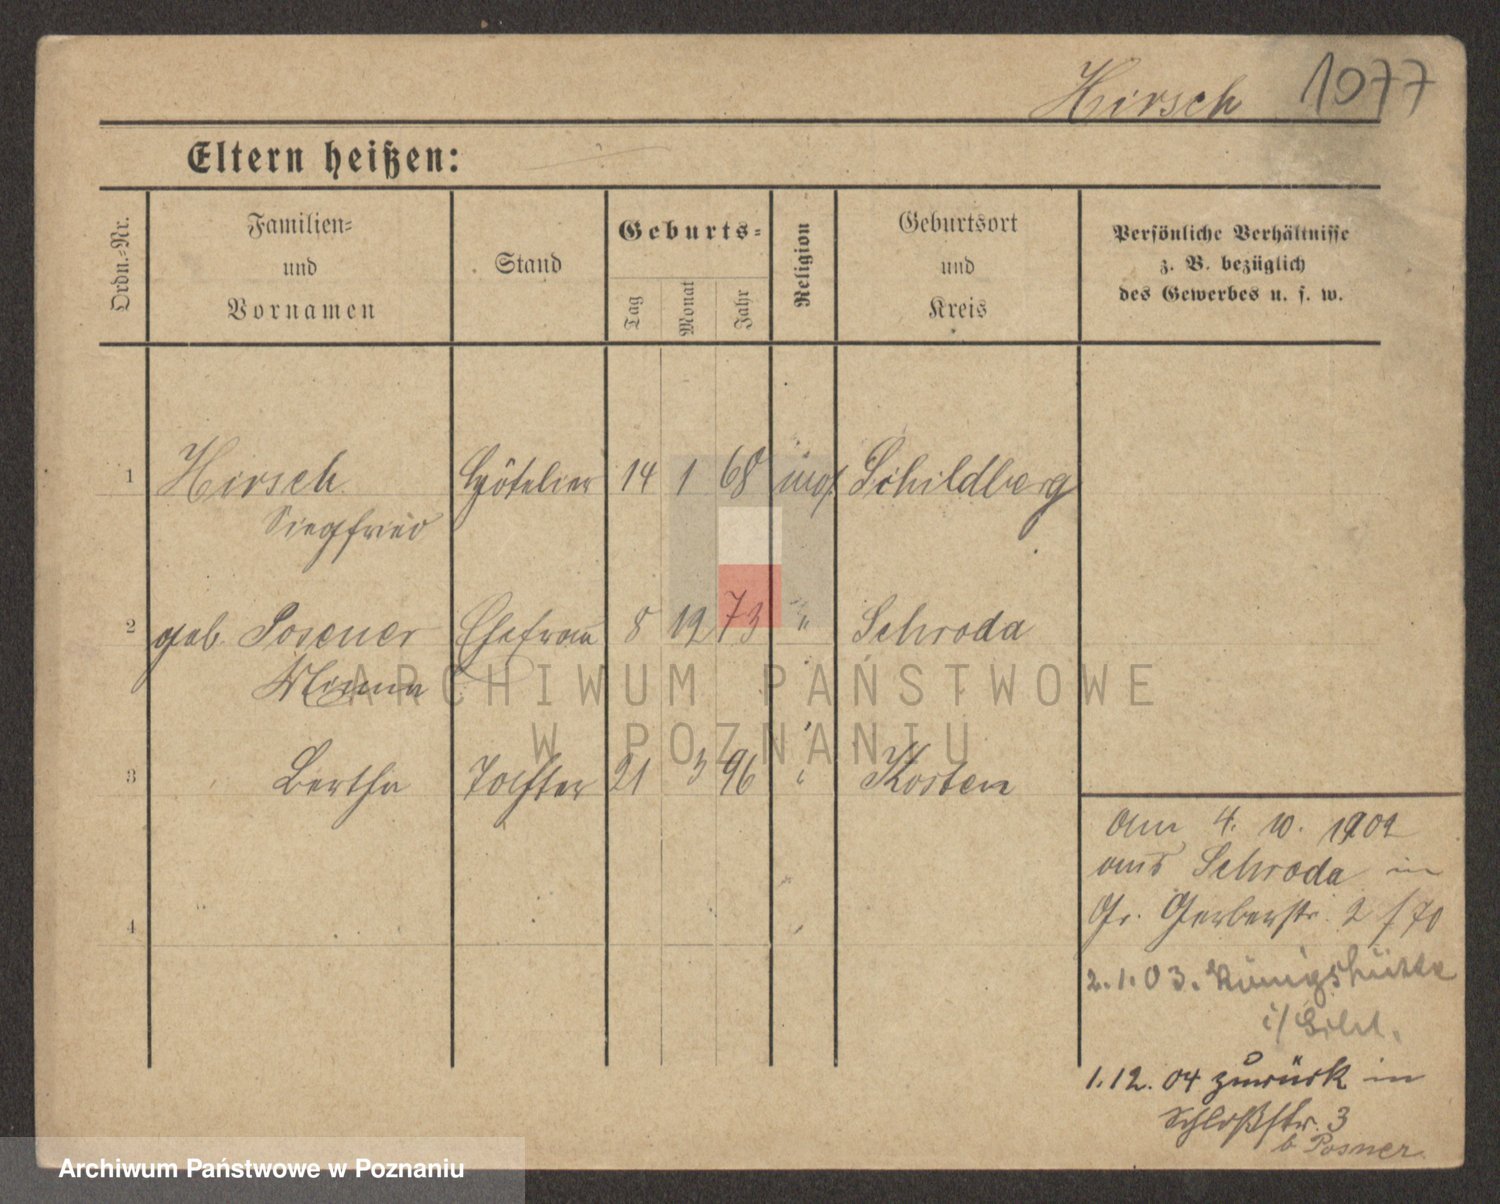 Hirsch 1077
Eltern heißen:
Ordn.=Nr.
Familien=
und
Vornamen
Stand
Geburts=
Tag
Monat
Jahr
Religion
Geburtsort
und
Kreis
Persönliche Verhältnisse
z. B. bezüglich
des Gewerbes u. s. w.
1 Hirsch Hôtelier 14 1 68 mos. Schildberg
Siegfried
2 geb. Posener Ehefrau 8 12 73 " Schroda
Minna
3 Bertha Tochter 21 3 96 " Kosten
4
Am 4. 10. 1902
aus Schroda in
Gr. Gerberstr. 2 / 70
2.1.03. Königshütte
1.12.04 zurück in
Schloßstr. 3
b. Posner
ARCHIWUM PAŃSTWOWE
W POZNANIU
Archiwum Państwowe w Poznaniu